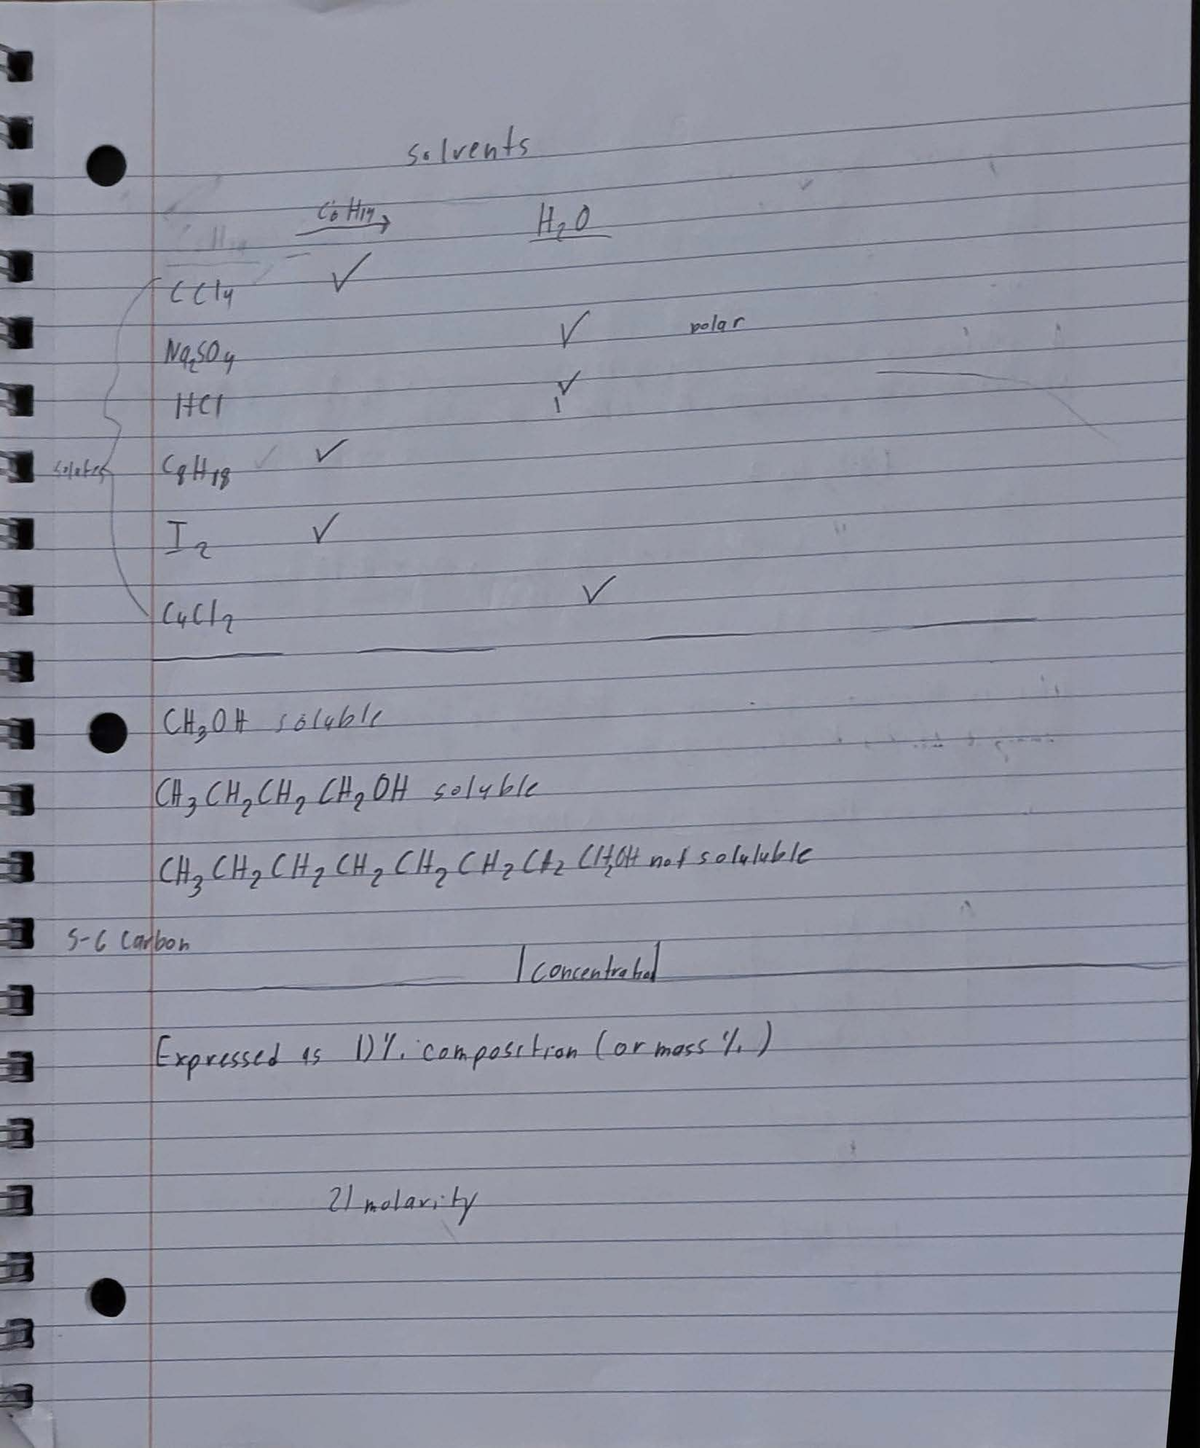 solvents
C6H14 H2O
CCl4 ✓
Na2SO4 ✓ polar
HCl ✓
solutes C8H18 ✓
I2 ✓
CuCl2 ✓
CH3OH soluble
CH3CH2CH2CH2OH soluble
CH3CH2CH2CH2CH2CH2CH2CH2OH not soluluble
5-6 Carbon
Expressed as 1) % composition (or mass %)
2) molarity